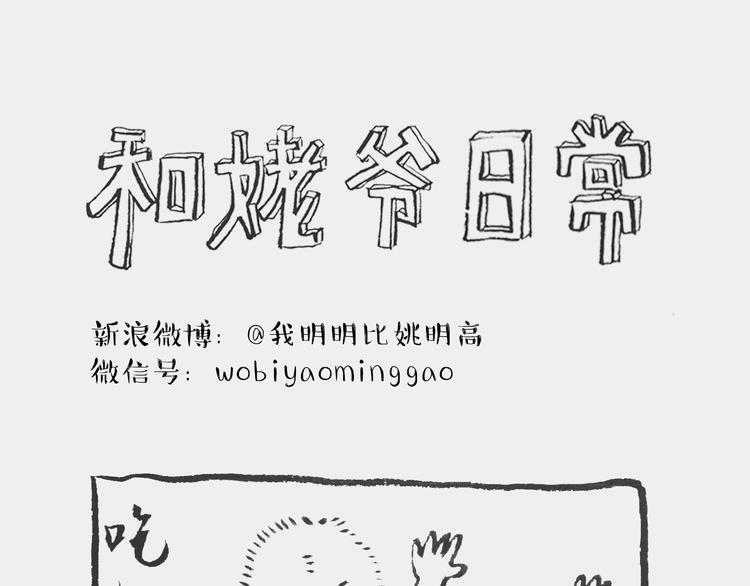 和姥爷日常
新浪微博: @我明明比姚明高
微信号: wobiyaominggao
吃